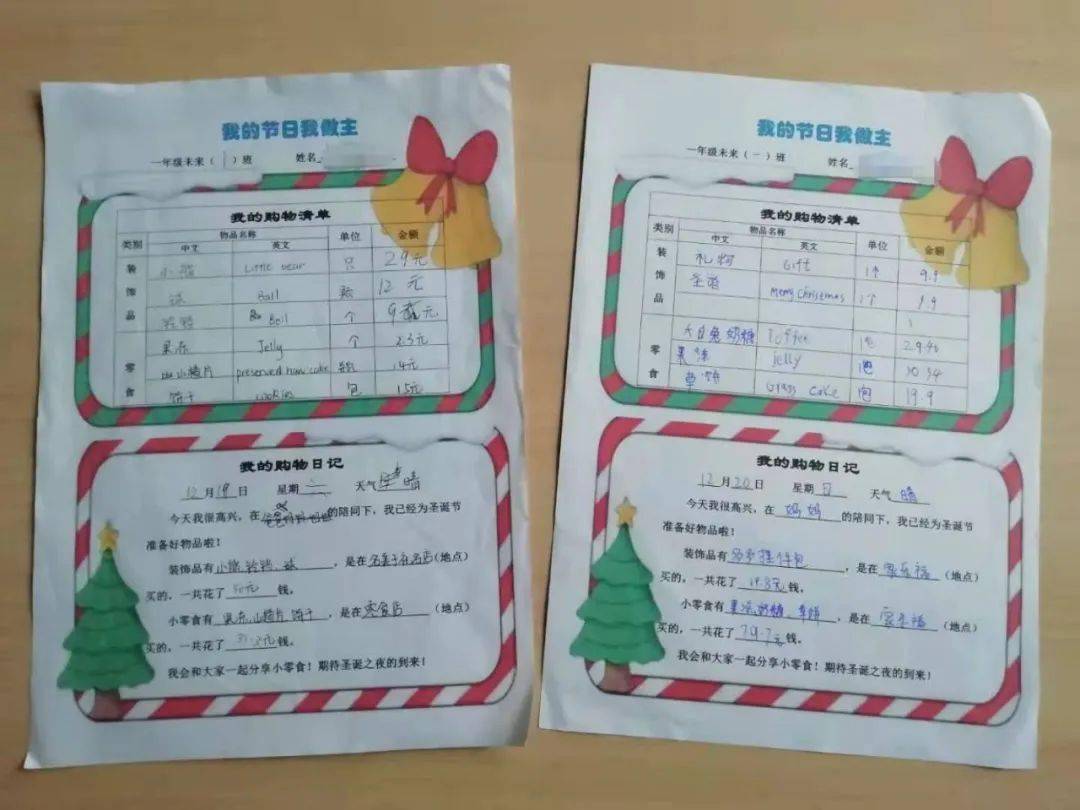 我的节日我做主
一年级未来( 1 )班 姓名
我的购物清单
类别 物品名称 单位 金额
中文 英文
装饰品
小熊 Little bear 只 29元
球 Ball 12元
铃铛 Bell 个 元
零食
果冻 Jelly 个 2.3元
山楂片 preserved haw cake 14元
饼干 cookies 包 15元
我的购物日记
12月19日 星期 天气 晴
今天我很高兴,在 的陪同下,我已经为圣诞节
准备好物品啦!
装饰品有小熊 铃铛、球,是在 (地点)
买的,一共花了50元钱。
小零食有果冻、山楂片、饼干,是在零食店(地点)
买的,一共花了31.3元钱。
我会和大家一起分享小零食!期待圣诞之夜的到来!
我的节日我做主
一年级未来(一)班 姓名
我的购物清单
类别 物品名称 单位 金额
中文 英文
装饰品
礼物 Gift 1个 9.9
圣诞 Merry Christmas 1个 9.9
零食
大白兔奶糖 Toffee 1包 29.46
果冻 jelly 30.34
草饼 Grass cake 包 19.9
我的购物日记
12月20日 星期日 天气 晴
今天我很高兴,在妈妈的陪同下,我已经为圣诞节
准备好物品啦!
装饰品有 ,是在家乐福(地点)
买的,一共花了19.8元钱。
小零食有果冻、奶糖、草饼,是在家乐福(地点)
买的,一共花了79.7元钱。
我会和大家一起分享小零食!期待圣诞之夜的到来!